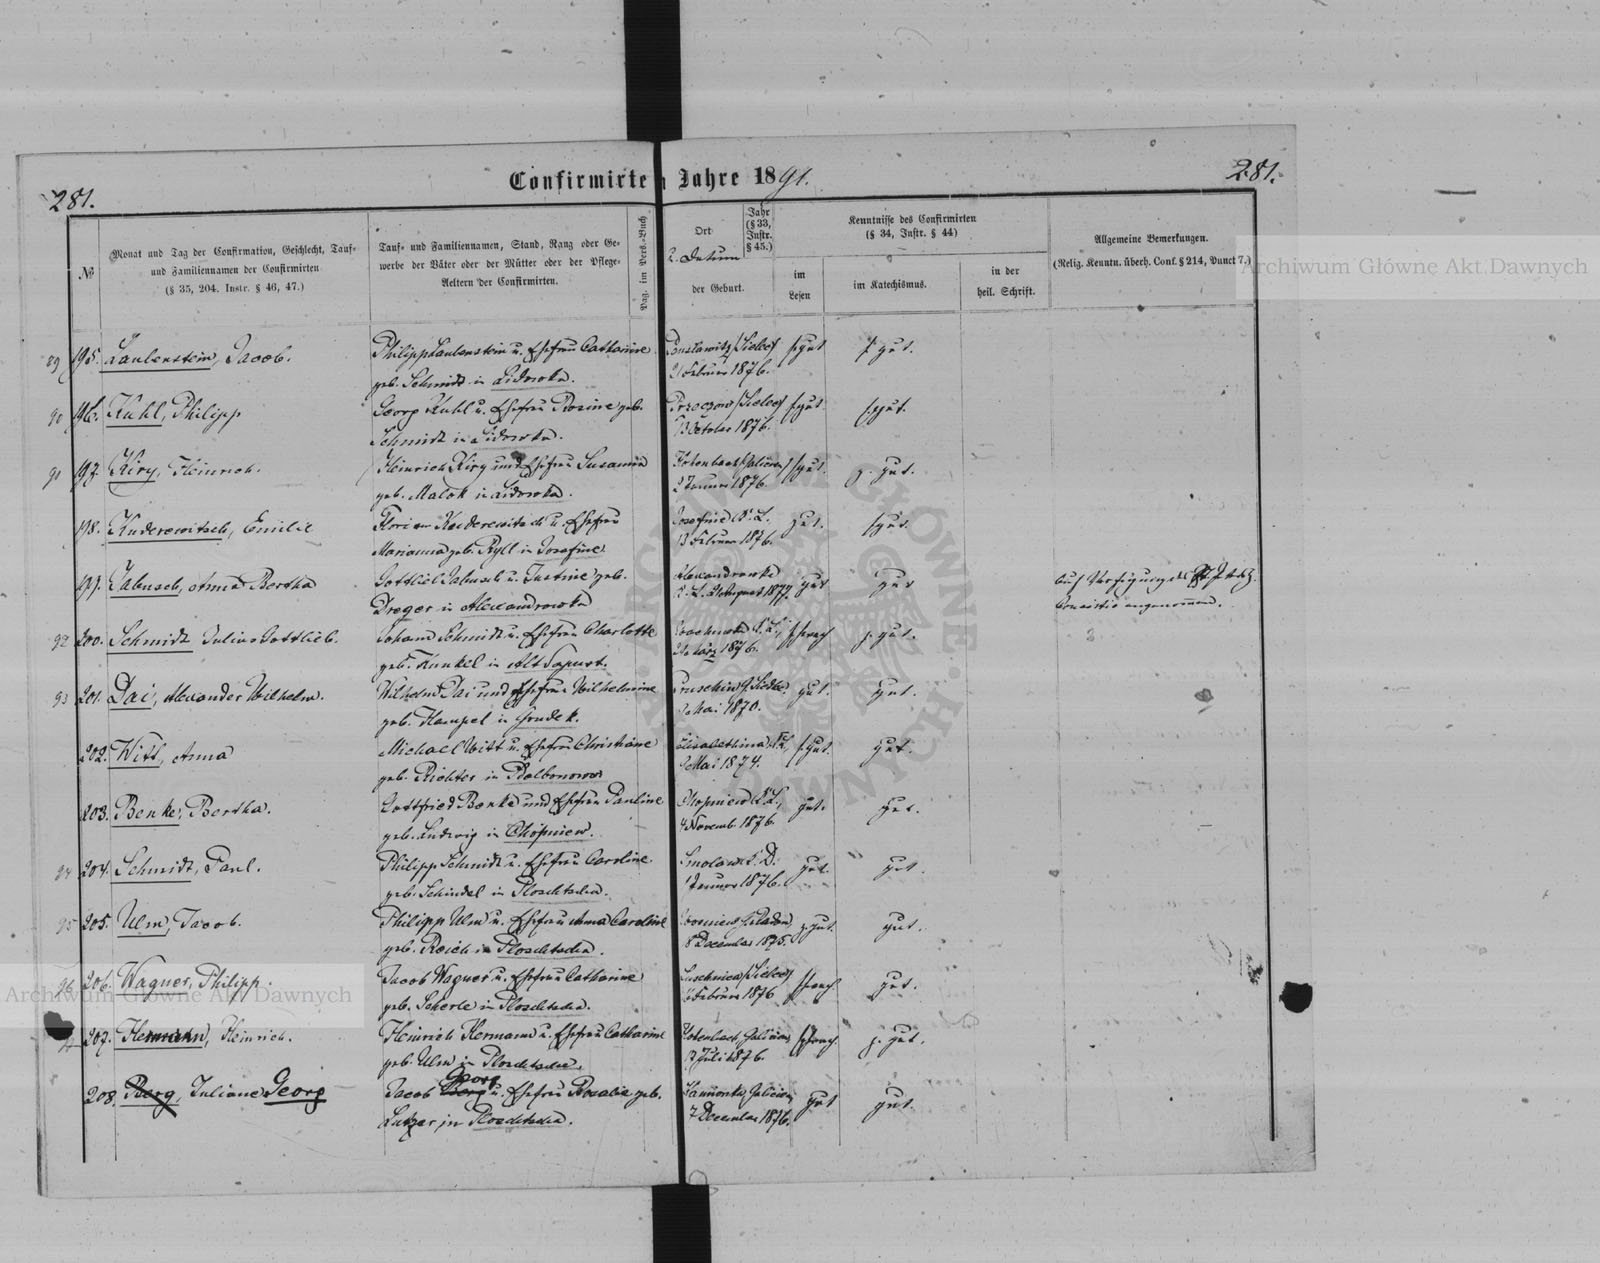 Confirmirte n Jahre 1891.
281.
281.
№
Monat und Tag der Confirmation, Geschlecht, Tauf-
und Familiennamen der Confirmirten
(§ 35, 204. Instr. § 46, 47.)
Tauf- und Familiennamen, Stand, Rang oder Ge-
werbe der Väter oder der Mütter oder der Pflege-
Aeltern der Confirmirten.
Pag. im Pers.-Buch
Ort
u. Datum
der Geburt.
Jahr
(§ 33,
Instr.
§ 45.)
Kenntnisse des Confirmirten
(§ 34, Instr. § 44)
im
Lesen
im Katechismus.
in der
heil. Schrift.
Allgemeine Bemerkungen.
(Relig. Kenntn. überh. Conf. § 214, Punct 7.)
Archiwum Główne Akt Dawnych
89 195. Laubenstein, Jacob.
Philipp Laubenstein u. Ehefrau Catharine
geb. Schmidt in Lidowka.
21 Februar 1876.
s. gut
s. gut.
90 196. Kuhl, Philipp
Georg Kuhl u. Ehefrau Rosine geb.
Schmidt in Lidowka.
13 October 1876.
s. gut
s. gut.
91 197. Kiry, Heinrich.
Heinrich Kiry und Ehefrau Susanna
geb. Malok in Lidowka.
2 Januar 1876
s. gut.
z. gut.
198. Kuderewitsch, Emilie
Florian Kuderewitsch u. Ehefrau
Marianna geb. Ryll in Josefine.
Josefine K. L.
13 Februar 1876.
gut.
s. gut.
199. Jabusch, Anna Bertha
Gottlieb Jabusch u. Justine geb.
Dreger in Alexandrowka
Alexandrowka
K. L. August 1877.
gut
gut
auf Verfügung des
angenommen.
92 200. Schmidt Julius Gottlieb.
Johann Schmidt u. Ehefrau Charlotte
geb. Kunkel in Alt Sapust.
März 1876.
s. schwach
z. gut.
93 201. Dai, Alexander Wilhelm.
Wilhelm Dai und Ehefrau Wilhelmine
geb. Hampel in Grudek.
Mai 1870.
gut.
gut.
202. Witt, Anna
Michael Witt u. Ehefrau Christiane
geb. Richter in
Elisabethina, K. L.
Mai 1874.
s. gut.
gut.
203. Benke, Bertha.
Gottfried Benke und Ehefrau Pauline
geb. Ludwig in Chopniew.
Chopniew K. L.,
4 Novemb. 1876.
gut.
gut.
94 204. Schmidt, Paul.
Philipp Schmidt u. Ehefrau Caroline
geb. Schindel in Ploschtscha.
1 Januar 1876.
gut.
gut.
95 205. Ulm, Jacob.
Philipp Ulm u. Ehefrau Anna Caroline
geb. Reich in Ploschtscha.
8 December 1875.
z. gut.
gut.
96 206. Wagner, Philipp.
Jacob Wagner u. Ehefrau Catharine
geb. Scherle in Ploschtscha.
Februar 1876
schwach
gut.
Archiwum Główne Akt Dawnych
207. Hermann, Heinrich.
Heinrich Hermann u. Ehefrau Catharine
geb. Ulm in Ploschtscha.
Rotenbach, Galicien,
17 Juli 1876.
schwach
z. gut.
208. Berg, Juliane Georg
Georg
Jacob Berg u. Ehefrau Rosalie geb.
Lutzer in Ploschtscha.
Galicien,
7 December 1876.
gut
gut.
ARCHIWUM GŁÓWNE AKT DAWNYCH